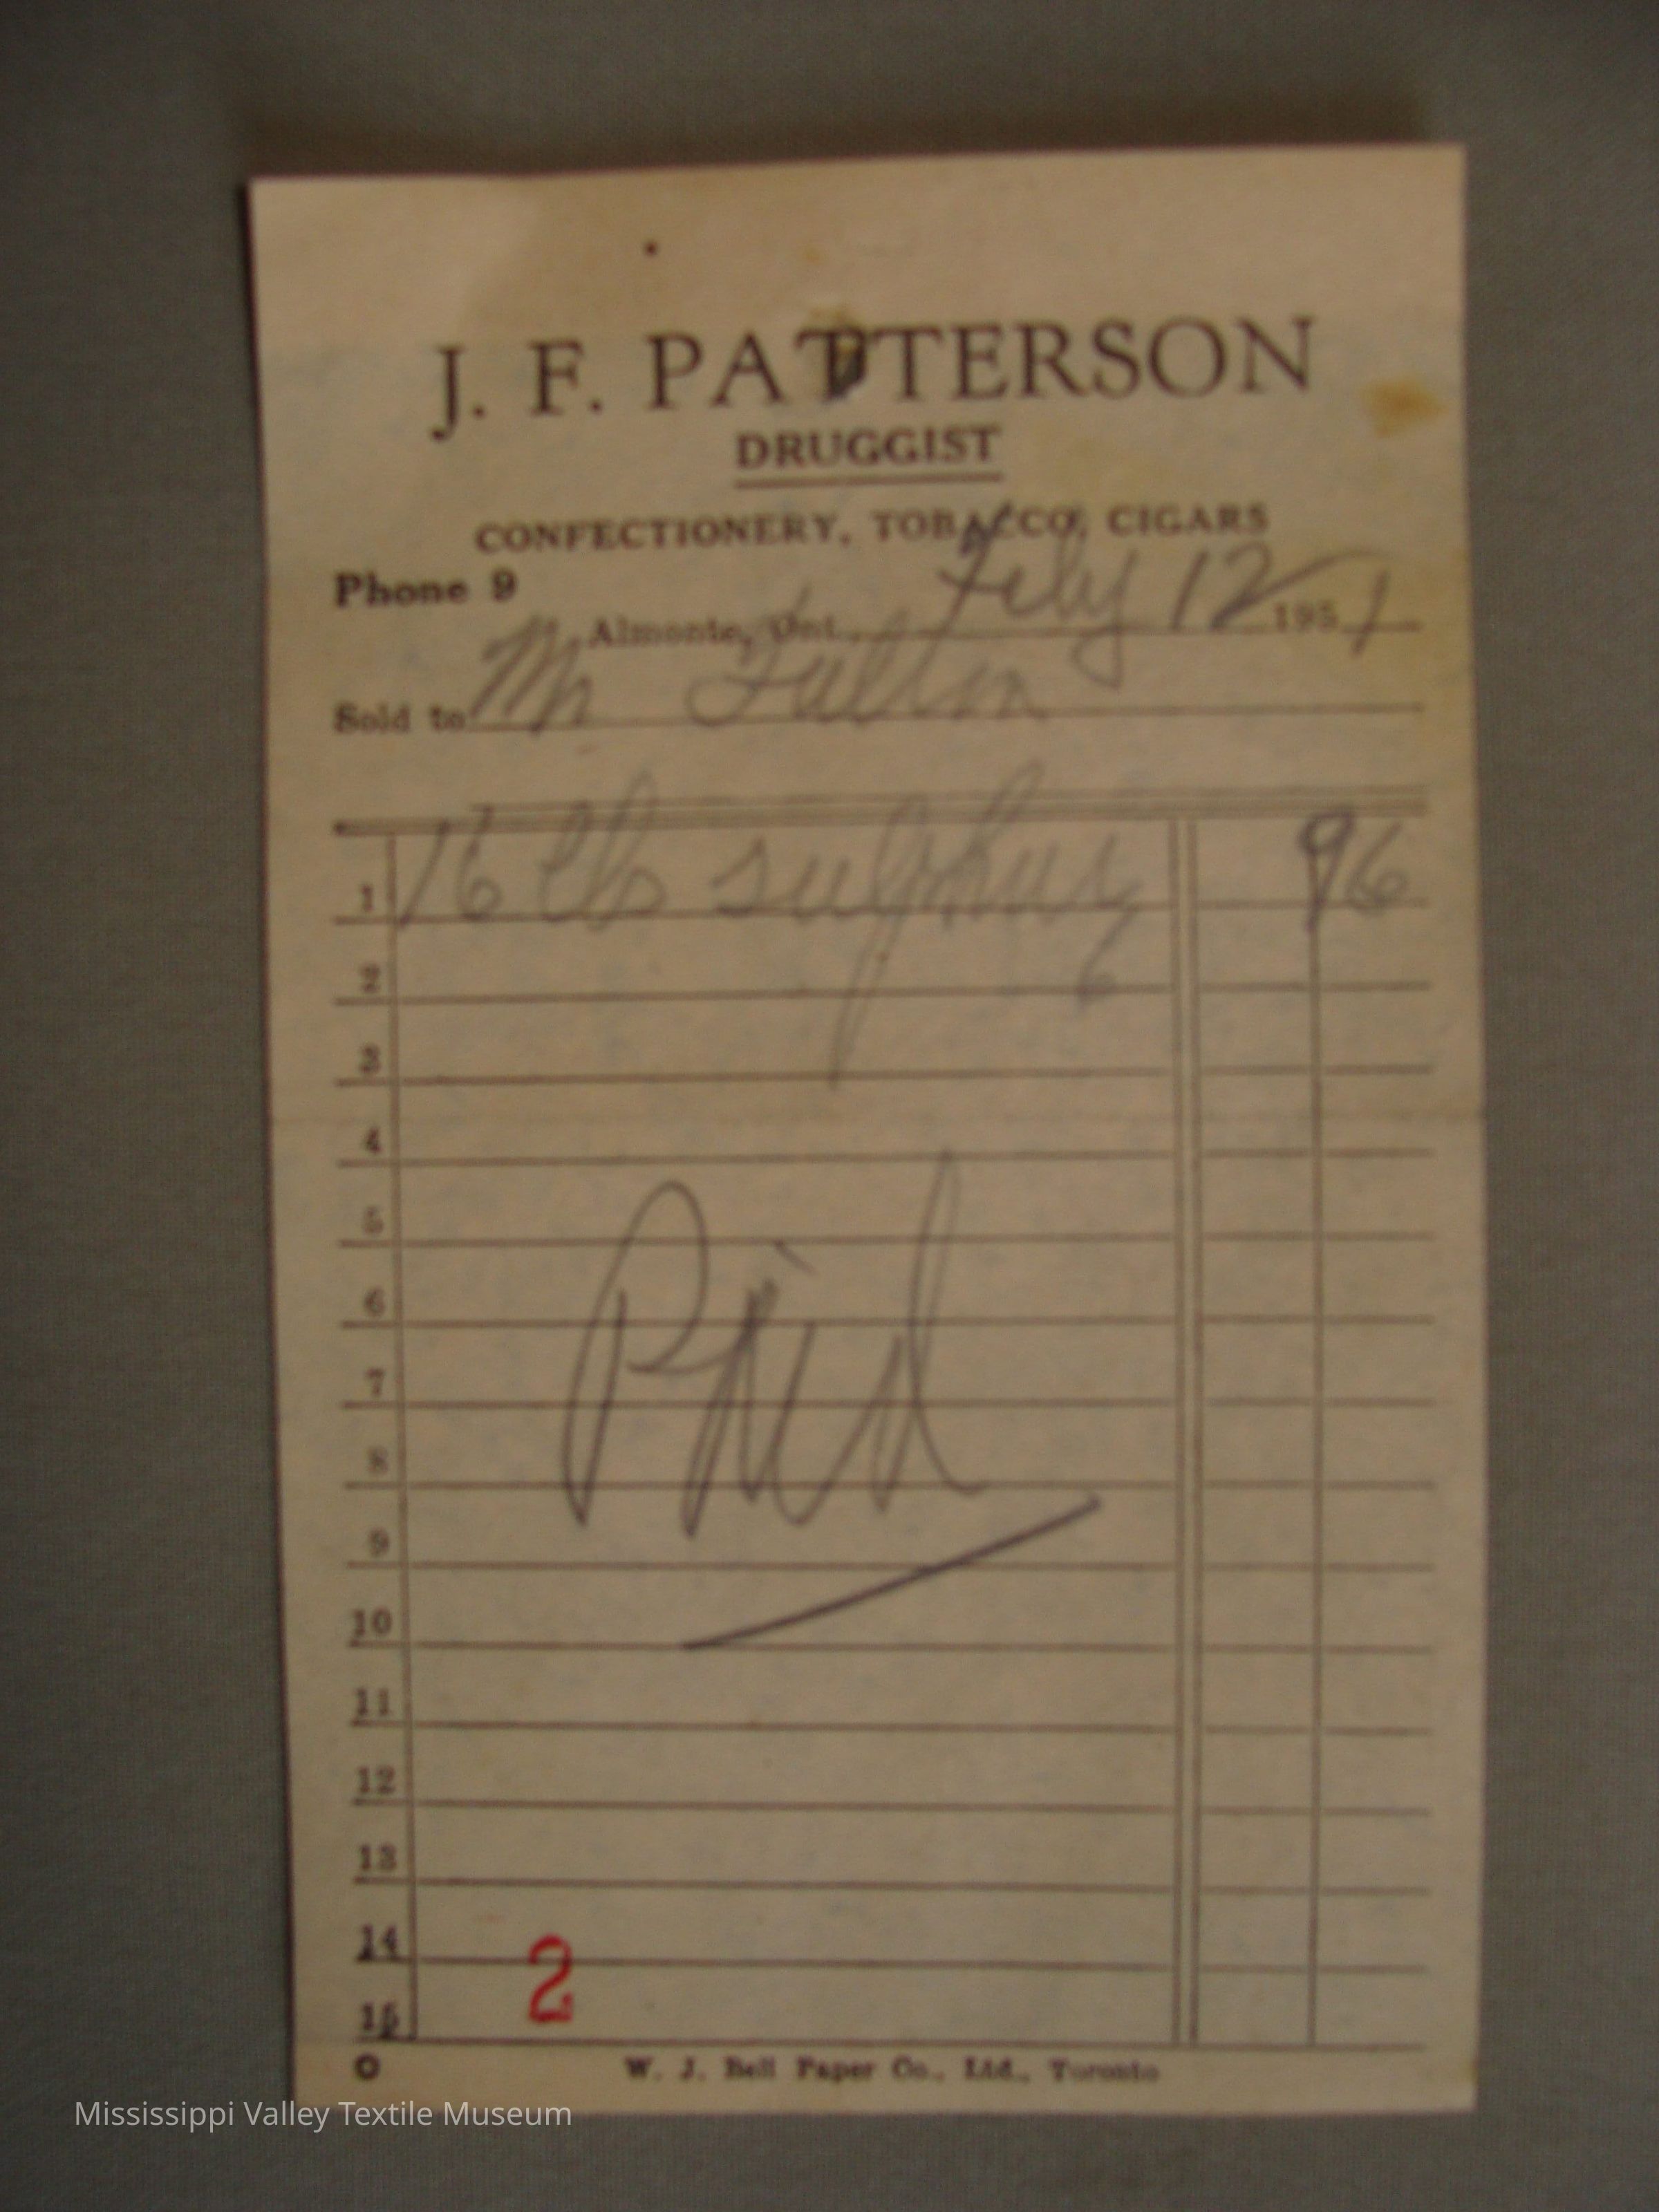 J. F. PATTERSON
DRUGGIST
CONFECTIONERY, TOBACCO, CIGARS
Phone 9
Almonte, Ont., Feby 12 1951
Sold to Mr
1 16 lb sulphur 96
2
3
4
5
6
7
8
9
10
11
12
13
14
15
Paid
2
O W. J. Bell Paper Co., Ltd., Toronto
Mississippi Valley Textile Museum